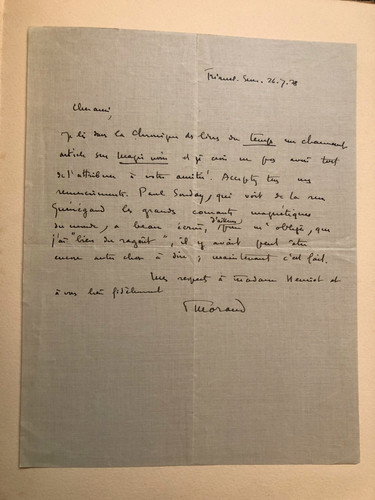 Triel-s-Seine. 26.7.28
Cher ami,
Je lis dans la Chronique des livres du Temps un charmant
article sur Magie noire et je crois ne pas avoir tort
de l'attribuer à votre amitié. Acceptez tous mes
remerciements. Paul Souday, qui voit de la rue
Guénégaud les grands courants magnétiques
du monde, a beau écrire, d'ailleurs m'obliger, que
j'ai "lieu du ragoût", il y avait peut-être
encore autre chose à dire; maintenant c'est fait.
Mes respects à Madame Henriot et
à vous bien fidèlement
PMorand